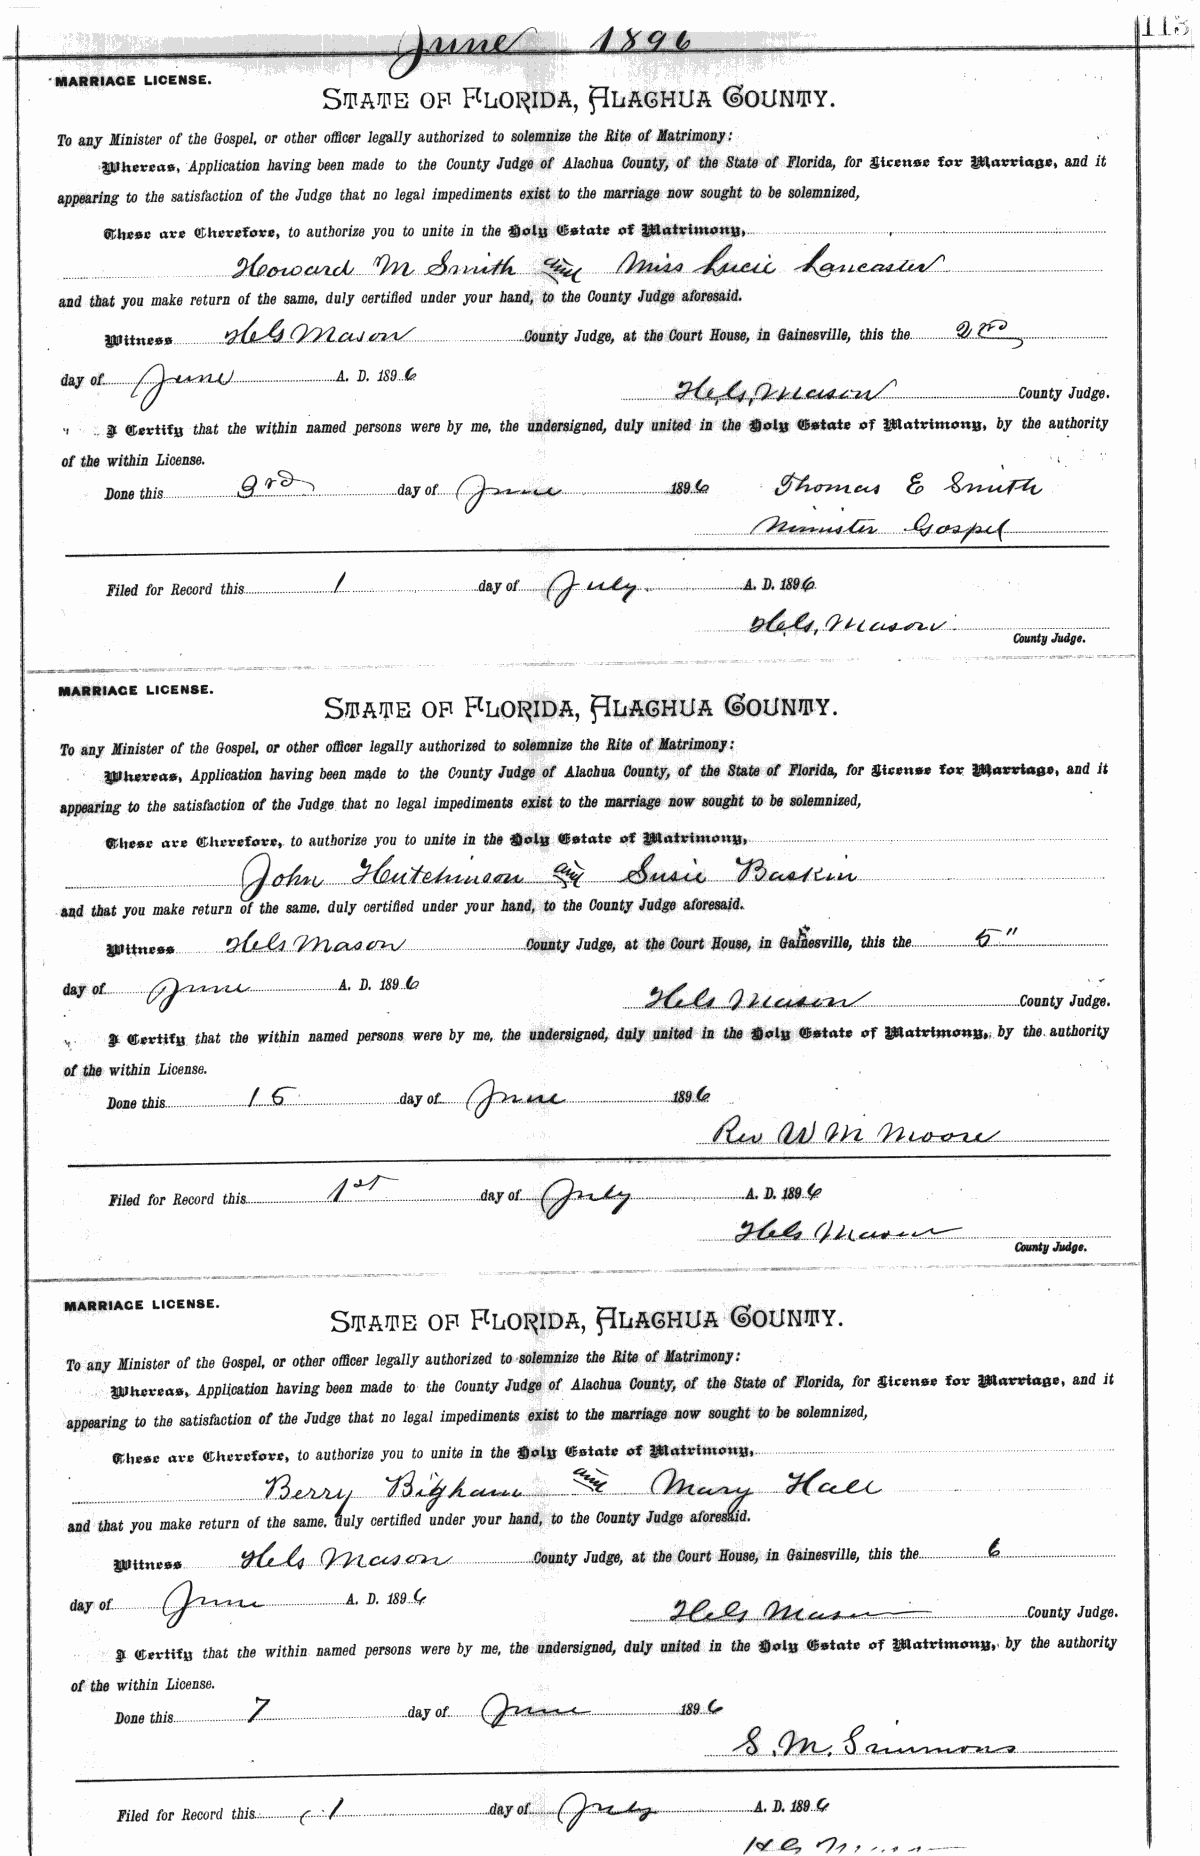 June 1896
113
MARRIAGE LICENSE.
STATE OF FLORIDA, ALACHUA COUNTY.
To any Minister of the Gospel, or other officer legally authorized to solemnize the Rite of Matrimony:
Whereas, Application having been made to the County Judge of Alachua County, of the State of Florida, for License for Marriage, and it
appearing to the satisfaction of the Judge that no legal impediments exist to the marriage now sought to be solemnized,
These are Therefore, to authorize you to unite in the Holy Estate of Matrimony,
Howard M Smith and Miss Lucie Lancaster
and that you make return of the same, duly certified under your hand, to the County Judge aforesaid.
Witness H.G. Mason County Judge, at the Court House, in Gainesville, this the 2nd
day of June A. D. 1896
H.G. Mason County Judge.
I Certify that the within named persons were by me, the undersigned, duly united in the Holy Estate of Matrimony, by the authority
of the within License.
Done this 3rd day of June 1896 Thomas E Smith
Minister Gospel
Filed for Record this 1 day of July A. D. 1896
H.G. Mason
County Judge.
MARRIAGE LICENSE.
STATE OF FLORIDA, ALACHUA COUNTY.
To any Minister of the Gospel, or other officer legally authorized to solemnize the Rite of Matrimony:
Whereas, Application having been made to the County Judge of Alachua County, of the State of Florida, for License for Marriage, and it
appearing to the satisfaction of the Judge that no legal impediments exist to the marriage now sought to be solemnized,
These are Therefore, to authorize you to unite in the Holy Estate of Matrimony,
John Hutchinson and Susie Baskin
and that you make return of the same, duly certified under your hand, to the County Judge aforesaid.
Witness H G Mason County Judge, at the Court House, in Gainesville, this the 5"
day of June A. D. 1896
H G Mason County Judge.
I Certify that the within named persons were by me, the undersigned, duly united in the Holy Estate of Matrimony, by the authority
of the within License.
Done this 15 day of June 1896
Rev W M Moore
Filed for Record this 1st day of July A. D. 1896
H G Mason
County Judge.
MARRIAGE LICENSE.
STATE OF FLORIDA, ALACHUA COUNTY.
To any Minister of the Gospel, or other officer legally authorized to solemnize the Rite of Matrimony:
Whereas, Application having been made to the County Judge of Alachua County, of the State of Florida, for License for Marriage, and it
appearing to the satisfaction of the Judge that no legal impediments exist to the marriage now sought to be solemnized,
These are Therefore, to authorize you to unite in the Holy Estate of Matrimony,
Berry Bigham and Mary Hall
and that you make return of the same, duly certified under your hand, to the County Judge aforesaid.
Witness H G Mason County Judge, at the Court House, in Gainesville, this the 6
day of June A. D. 1896
H G Mason County Judge.
I Certify that the within named persons were by me, the undersigned, duly united in the Holy Estate of Matrimony, by the authority
of the within License.
Done this 7 day of June 1896
S. M. Simmons
Filed for Record this 1 day of July A. D. 1896
H G Mason